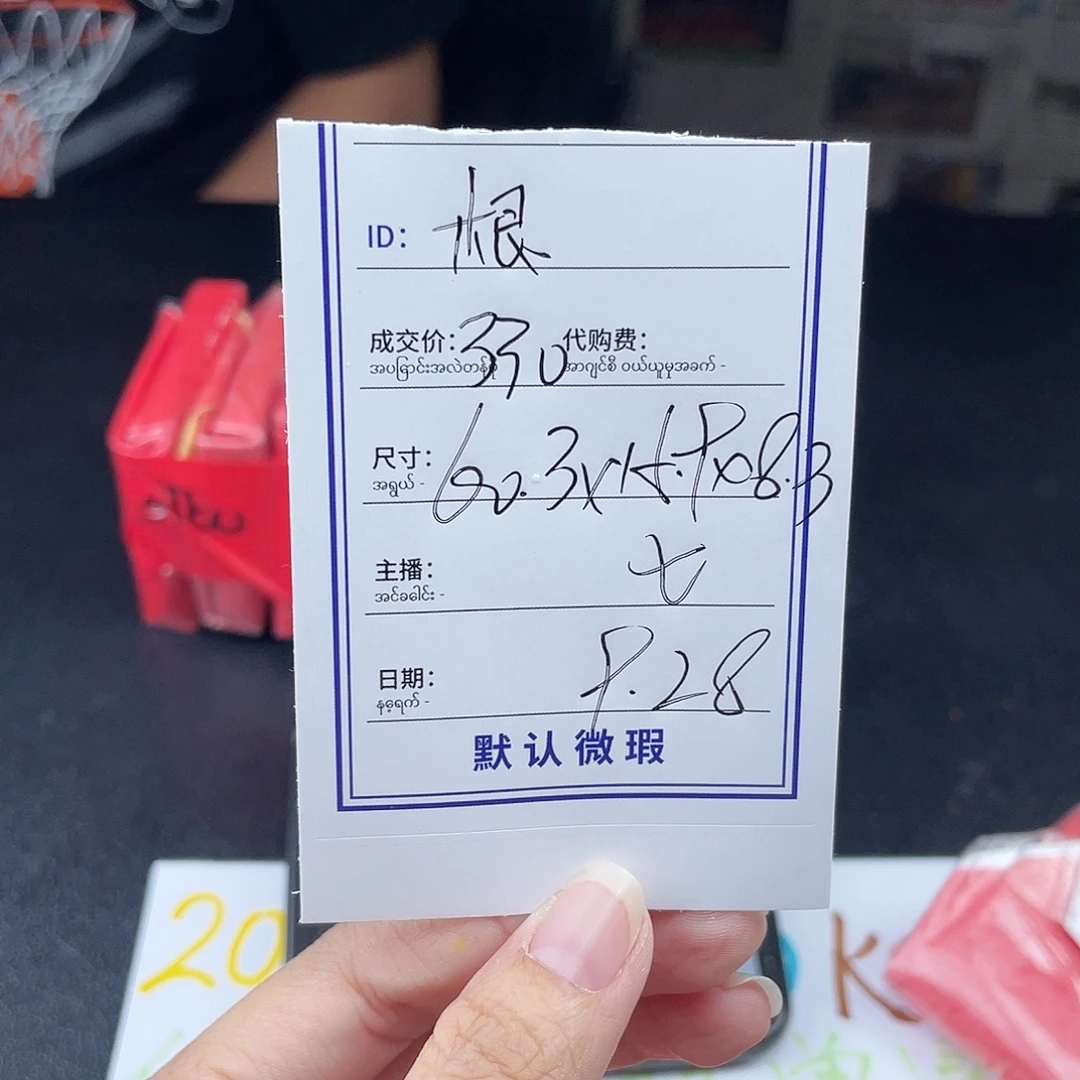 ID: 根
成交价: 330 代购费:
အပြောင်းအလဲတန်ဖိုး အာဂျင်စီ ဝယ်ယူမှုအခက် -
尺寸: 60.3x15.9x8.3
အရွယ် -
主播: 七
အင်ခေါင်း -
日期: 9.28
နေ့ရက် -
默认微瑕
20
K